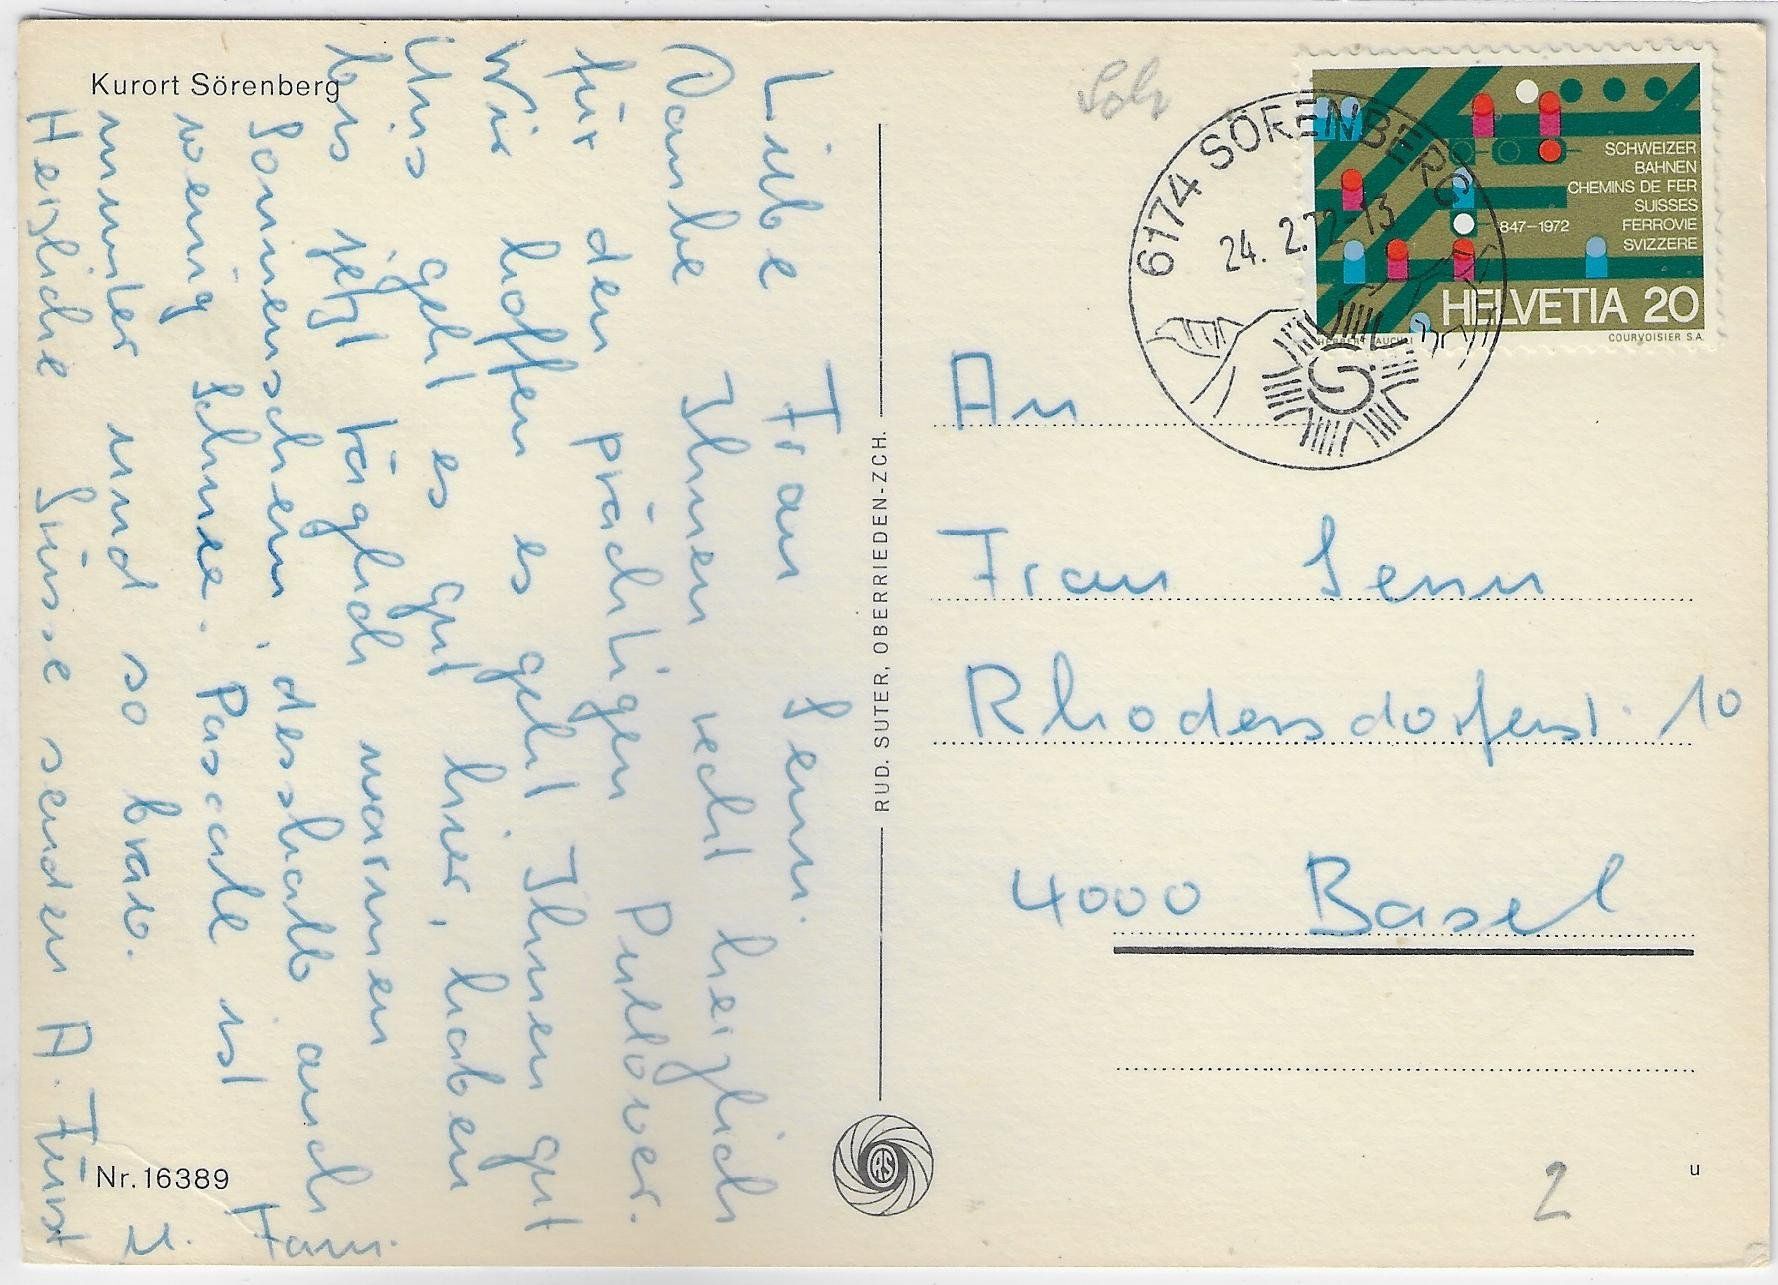 Kurort Sörenberg
Liebe Frau Senn.
Danke Ihnen recht herzlich
für den prächtigen Pullover.
Wir hoffen es geht Ihnen gut
Uns geht es gut hier, haben
bis jetzt täglich warmen
Sonnenschein, desshalb auch
wenig Schnee. Pascale ist
munter und so brav.
Herzliche Grüsse senden A. Fürst
u. Fam.
Nr. 16389
RUD. SUTER, OBERRIEDEN-ZCH.
RS
6174 SÖRENBERG
24. 2.72 13
SCHWEIZER
BAHNEN
CHEMINS DE FER
SUISSES
847–1972
FERROVIE
SVIZZERE
HELVETIA 20
COURVOISIER S.A.
An
Frau Senn
Rhodersdorferst. 10
4000 Basel
u
2